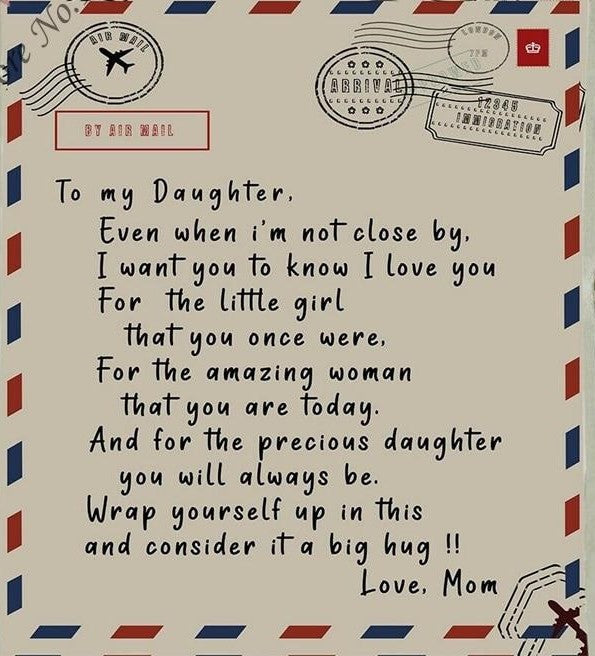 re No.
AIR MAIL
LONDON
7PM
ARRIVAL
12345
IMMIGRATION
BY AIR MAIL
To my Daughter,
Even when i'm not close by,
I want you to know I love you
For the little girl
that you once were,
For the amazing woman
that you are today.
And for the precious daughter
you will always be.
Wrap yourself up in this
and consider it a big hug !!
Love, Mom